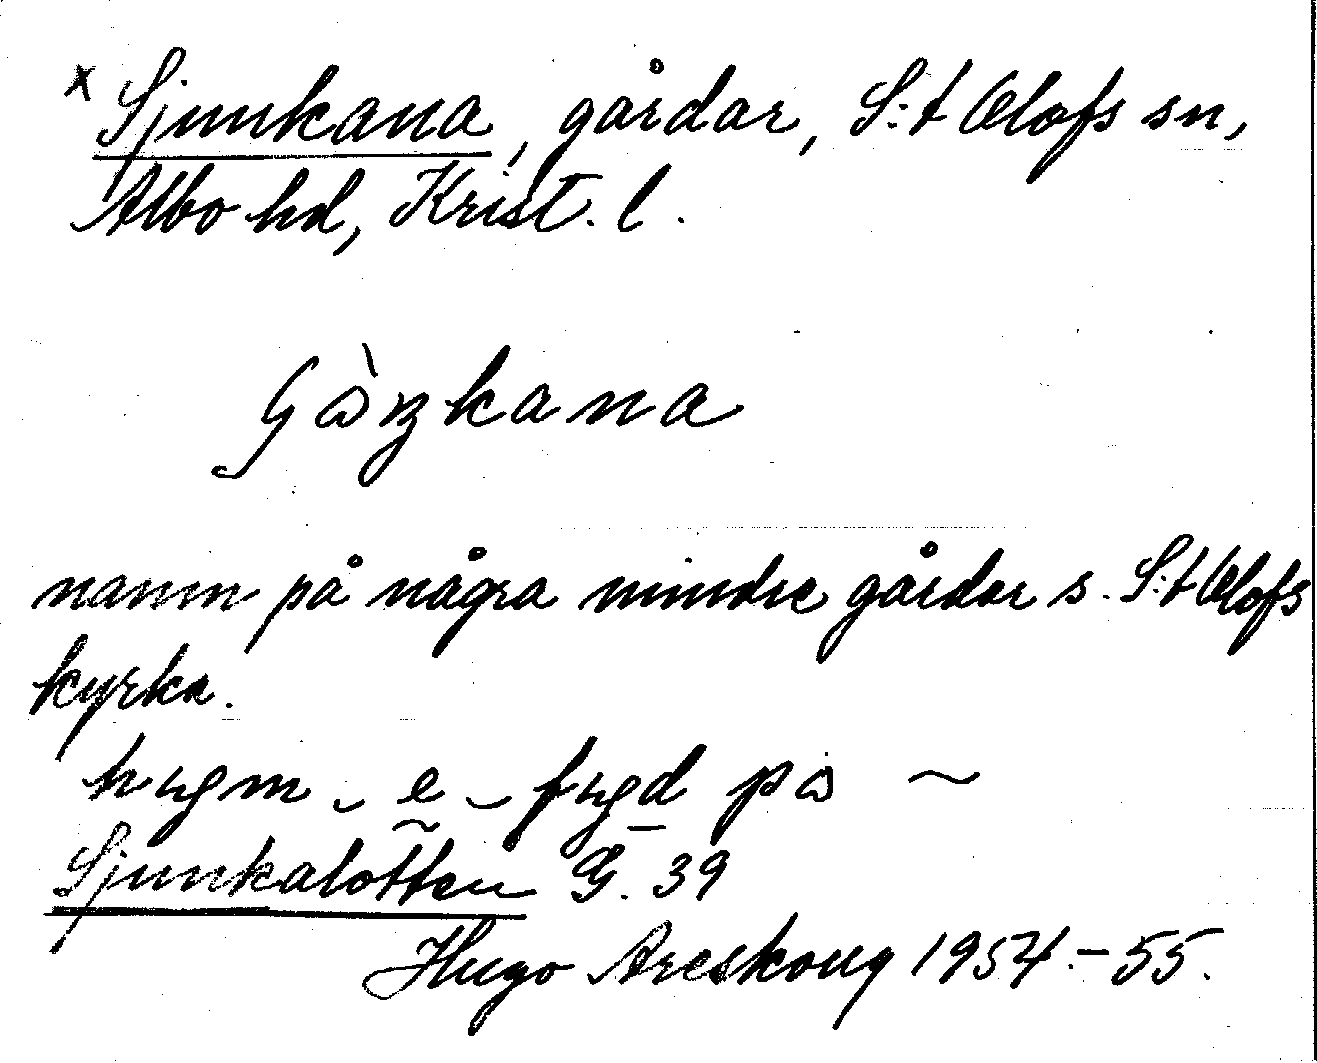 x Sjunkana, gårdar, S:t Olofs sn,
Albo hd, Krist. l.
namn på några mindre gårdar s. S:t Olofs
kyrka.
Sjunkalotten G. 39
Hugo Areskoug 1954.-55.